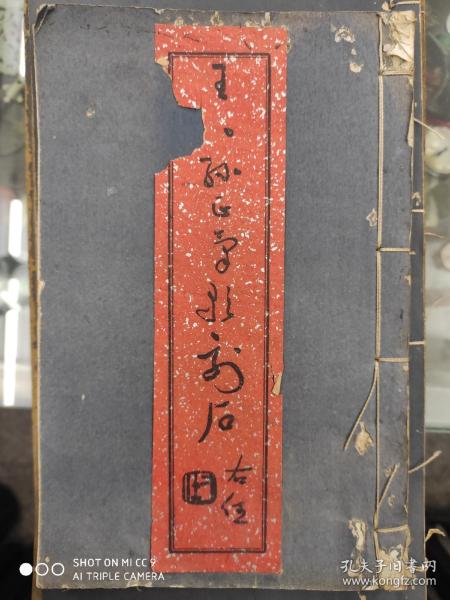 王々孫正氣歌刻石
右任
SHOT ON MI CC 9
AI TRIPLE CAMERA
孔夫子旧书网
www.kongfz.com